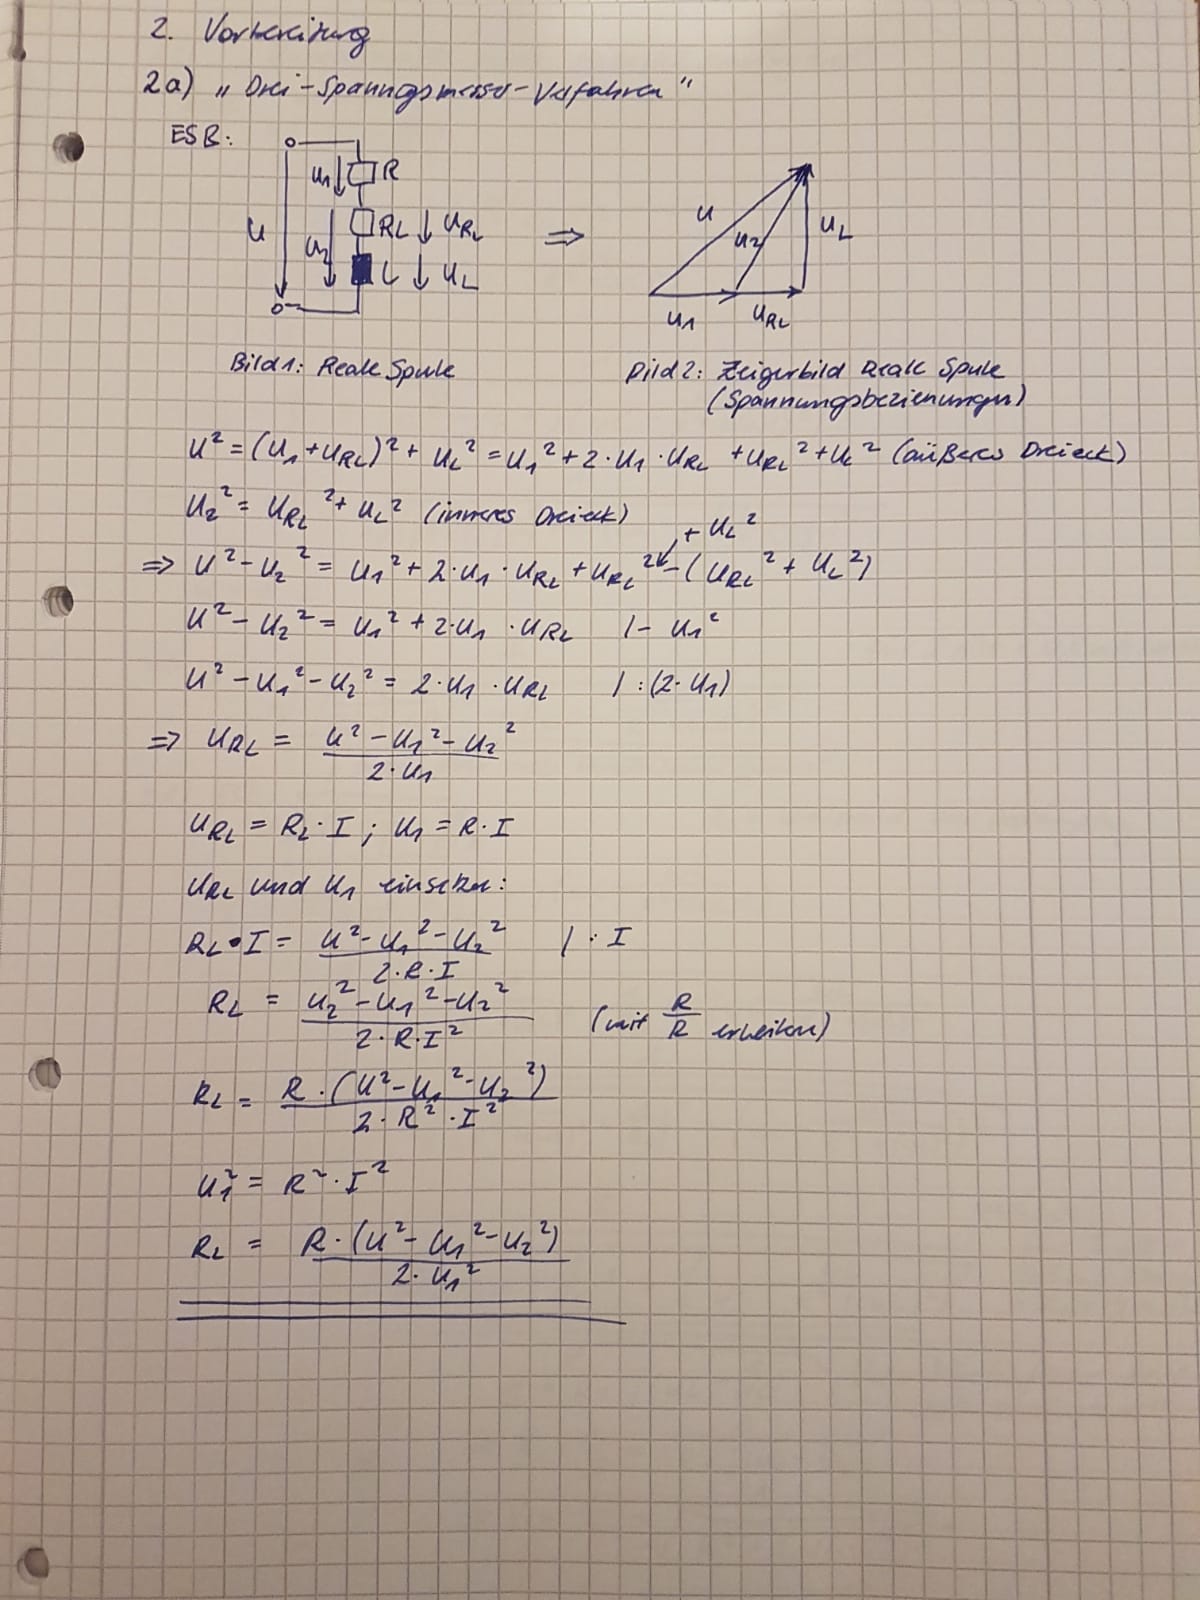 2. Vorbereitung
2a) „Drei-Spannungsmesser-Verfahren"
ESB:
U
U1 R
U2 RL URL
L UL
⇒
U
U2
UL
U1 URL
Bild1: Reale Spule
Bild2: Zeigerbild Reale Spule
(Spannungsbeziehungen)
U² = (U1+URL)² + UL² = U1² + 2·U1·URL + URL² + UL² (äußeres Dreieck)
U2² = URL² + UL² (inneres Dreieck)
+ UL²
⇒ U² - U2² = U1² + 2·U1·URL + URL² - (URL² + UL²)
U² - U2² = U1² + 2·U1·URL |- U1²
U² - U1² - U2² = 2·U1·URL | :(2·U1)
⇒ URL = (U² - U1² - U2²) / (2·U1)
URL = RL·I ; U1 = R·I
URL und U1 einsetzen:
RL·I = (U² - U1² - U2²) / (2·R·I) | : I
RL = (U2² - U1² - U2²) / (2·R·I²) (mit R/R erweitern)
RL = R·(U² - U1² - U2²) / (2·R²·I²)
U1² = R²·I²
RL = R·(U² - U1² - U2²) / (2·U1²)